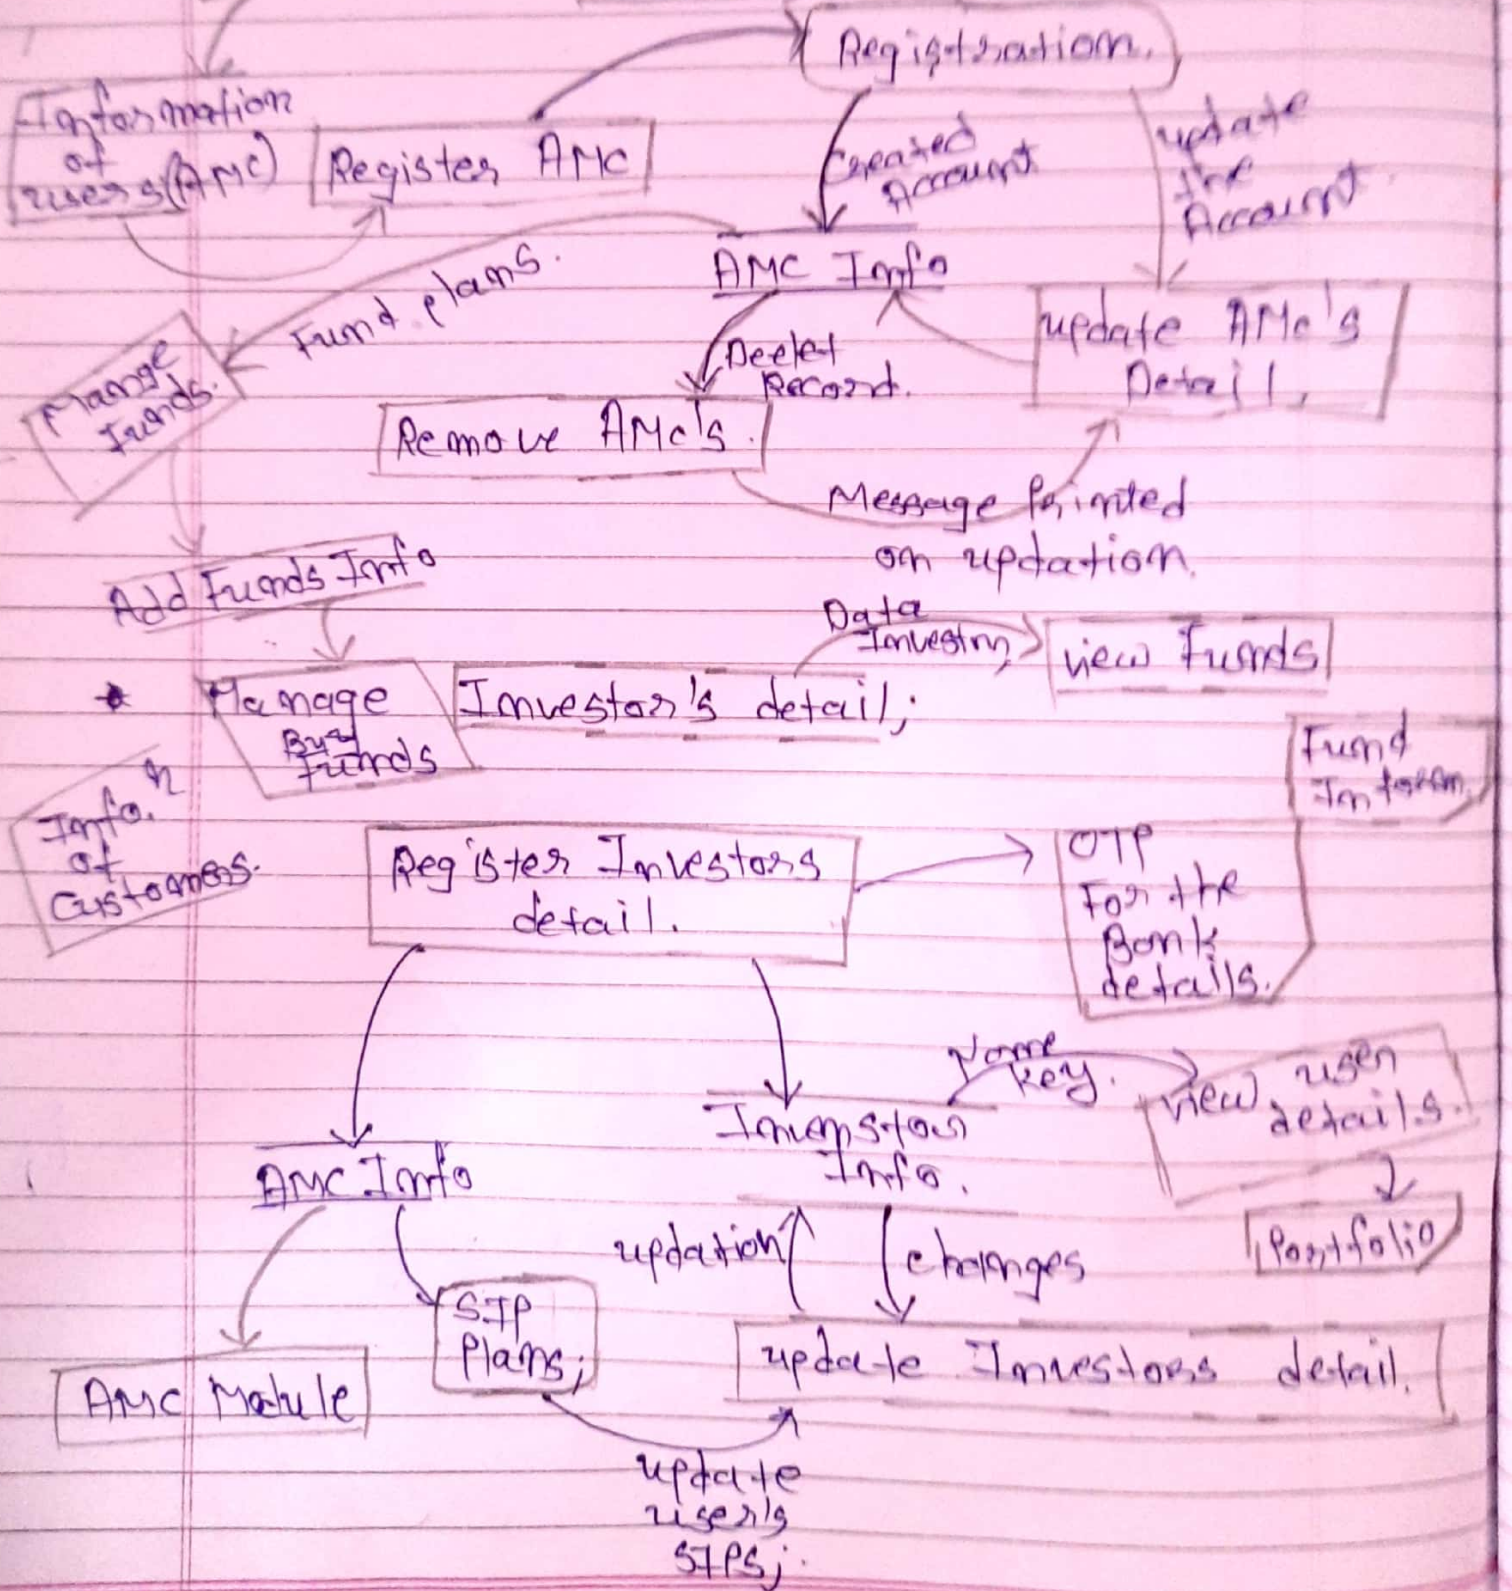 Registration.
Information
of
users(AMC)
Register AMC
Created
Account
update
the
Account
AMC Info
Fund plans.
Deelet
Record.
update AMC's
Detail.
Mange
Funds.
Remove AMC's.
Message Printed
on updation.
Add Funds Info
Data
Investry
view Funds
Manage
Buy
Funds
Investor's detail;
Fund
Inform.
Info.n
of
Customers.
Register Investors
detail.
OTP
For the
Bank
details.
Name
Key.
view user
details.
Invenstor
Info.
AMC Info
Portfolio
updation
changes
SIP
Plans;
update Investors detail.
AMC Module
update
user's
SIPS;